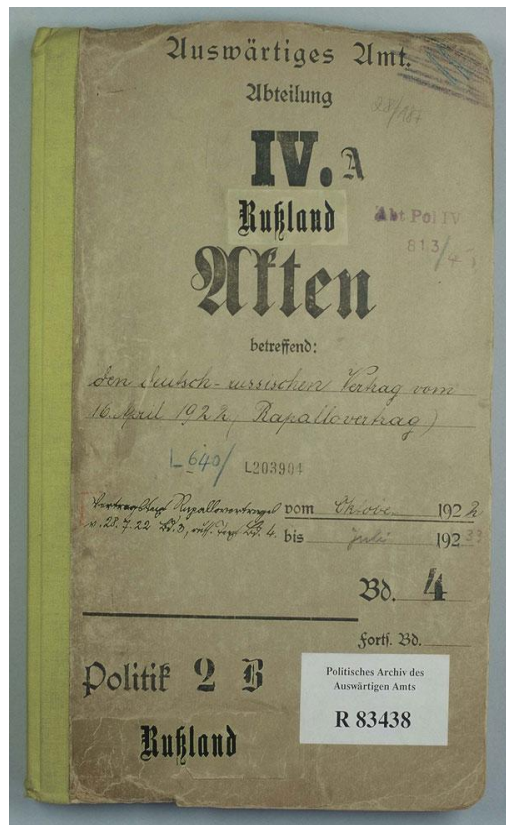 Auswärtiges Amt.
Abteilung
28/187
IV. A
Rußland
Abt Pol IV
813/4
Akten
betreffend:
den deutsch-russischen Vertrag vom
16. April 1922 (Rapallovertrag)
L 640/ L203904
Rapallovertrags vom Oktober 1922
v. 28.7.22 Bd. 3, Bd. 4. bis Juli 1933
Bd. 4
Forts. Bd.
Politik 2 B
Rußland
Politisches Archiv des
Auswärtigen Amts
R 83438